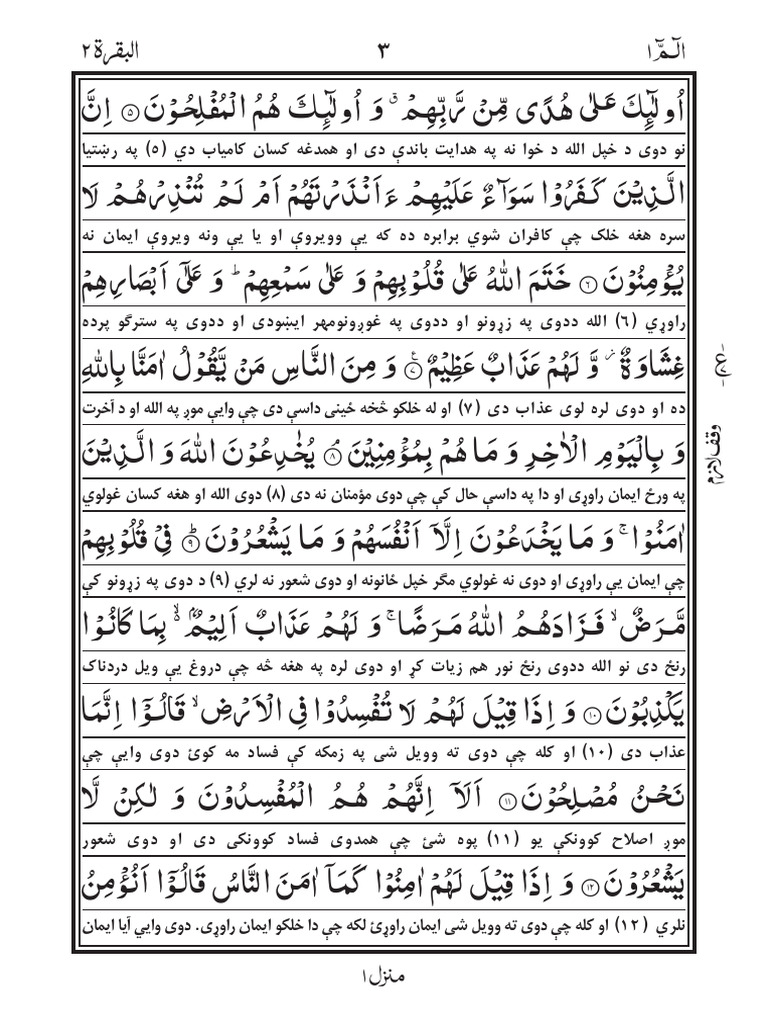 الٓمّٓ ١ ٣ البقرة ٢
اُولٰٓئِكَ عَلٰى هُدًى مِّنْ رَّبِّهِمْ ۗ وَ اُولٰٓئِكَ هُمُ الْمُفْلِحُوْنَ ۝٥ اِنَّ
نو دوی د خپل الله د خوا نه په هدایت باندې دی او همدغه کسان کامیاب دي (٥) په رښتیا
الَّذِيْنَ كَفَرُوْا سَوَآءٌ عَلَيْهِمْ ءَاَنْذَرْتَهُمْ اَمْ لَمْ تُنْذِرْهُمْ لَا
سره هغه خلک چې کافران شوي برابره ده که یې وویروې او یا یې ونه ویروې ایمان نه
يُؤْمِنُوْنَ ۝٦ خَتَمَ اللّٰهُ عَلٰى قُلُوْبِهِمْ وَ عَلٰى سَمْعِهِمْ ؕ وَ عَلٰٓى اَبْصَارِهِمْ
راوړي (٦) الله ددوی په زړونو او ددوی په غوږونومهر ایښودی او ددوی په سترګو پرده
غِشَاوَةٌ ۫ وَّ لَهُمْ عَذَابٌ عَظِيْمٌ ۝٧ۧ وَ مِنَ النَّاسِ مَنْ يَّقُوْلُ اٰمَنَّا بِاللّٰهِ
ده او دوی لره لوی عذاب دی (٧) او له خلکو څخه ځینی داسې دی چې وایې موږ په الله او د آخرت
وَ بِالْيَوْمِ الْاٰخِرِ وَ مَا هُمْ بِمُؤْمِنِيْنَ ۝٨ۘ يُخٰدِعُوْنَ اللّٰهَ وَ الَّذِيْنَ
وقف لازم
په ورځ ایمان راوړی او دا په داسې حال کې چې دوی مؤمنان نه دی (٨) دوی الله او هغه کسان غولوي
اٰمَنُوْا ۚ وَ مَا يَخْدَعُوْنَ اِلَّاۤ اَنْفُسَهُمْ وَ مَا يَشْعُرُوْنَ ۝٩ؕ فِيْ قُلُوْبِهِمْ
چې ایمان یې راوړی او دوی نه غولوي مګر خپل ځانونه او دوی شعور نه لري (٩) د دوی په زړونو کې
مَّرَضٌ ۙ فَزَادَهُمُ اللّٰهُ مَرَضًا ۚ وَ لَهُمْ عَذَابٌ اَلِيْمٌ ۢ ۙ بِمَا كَانُوْا
رنځ دی نو الله ددوی رنځ نور هم زیات کړ او دوی لره په هغه څه چې دروغ یې ویل دردناک
يَكْذِبُوْنَ ۝١٠ وَ اِذَا قِيْلَ لَهُمْ لَا تُفْسِدُوْا فِي الْاَرْضِ ۙ قَالُوْٓا اِنَّمَا
عذاب دی (١٠) او کله چې دوی ته وویل شی په زمکه کې فساد مه کوئ دوی وایې چې
نَحْنُ مُصْلِحُوْنَ ۝١١ اَلَاۤ اِنَّهُمْ هُمُ الْمُفْسِدُوْنَ وَ لٰكِنْ لَّا
موږ اصلاح کوونکي یو (١١) پوه شئ چې همدوی فساد کوونکی دی او دوی شعور
يَشْعُرُوْنَ ۝١٢ وَ اِذَا قِيْلَ لَهُمْ اٰمِنُوْا كَمَاۤ اٰمَنَ النَّاسُ قَالُوْٓا اَنُؤْمِنُ
نلري (١٢) او کله چې دوی ته وویل شی ایمان راوړئ لکه چې دا خلکو ایمان راوړی. دوی وایي آیا ایمان
منزل ١